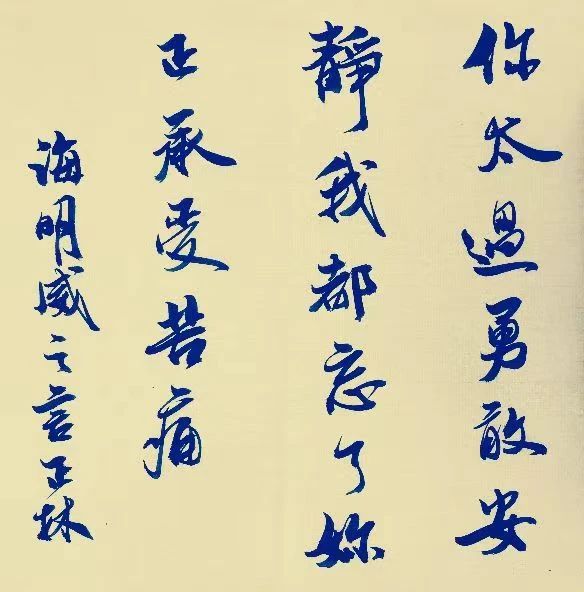 你太過勇敢安
靜我都忘了妳
正承受苦痛
海明威之言正林